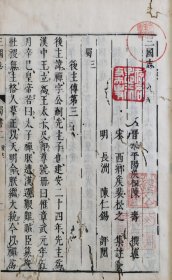 三國志
晉平陽侯相陳壽撰述
宋西鄉侯裴松之集註
蜀三
明長洲陳仁錫評閱
後主傳第三
後主諱禪字公嗣先主子也建安二十四年先主為
漢中王立為王太子及即尊號冊曰惟章武元年五
月辛巳皇帝若曰太子禪朕遭漢運艱難賊臣篡盜
社稷無主格人羣正以天明命朕繼大統今以禪為